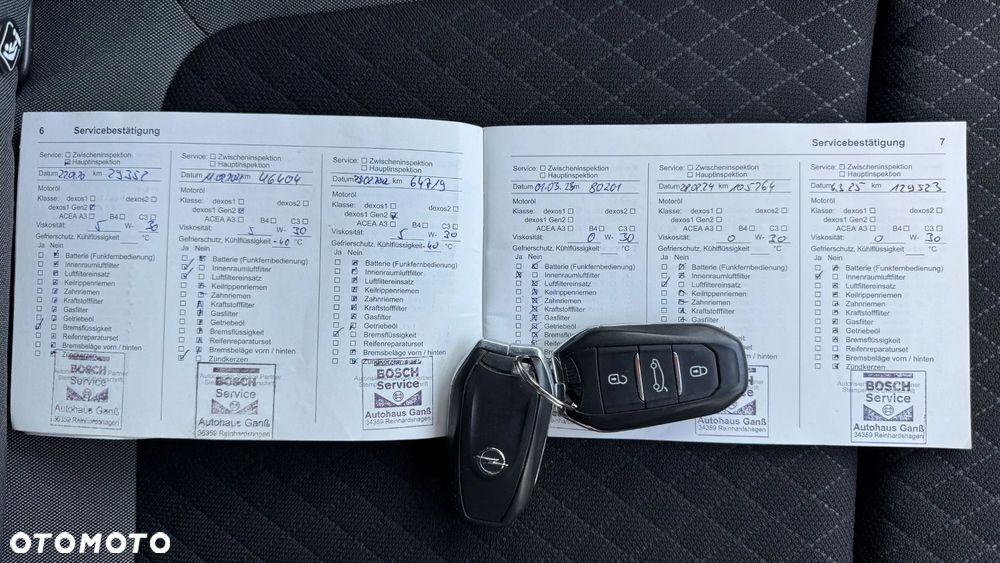 6 Servicebestätigung
Service: Zwischeninspektion
Hauptinspektion
Datum km 29352
Motoröl
Klasse: dexos1 dexos2
dexos1 Gen2
ACEA A3 B4 C3
Viskosität: 5 W- 30
Gefrierschutz, Kühlflüssigkeit °C
Ja Nein
Batterie (Funkfernbedienung)
Innenraumluftfilter
Luftfiltereinsatz
Keilrippenriemen
Zahnriemen
Kraftstofffilter
Gasfilter
Getriebeöl
Bremsflüssigkeit
Reifenreparaturset
Bremsbeläge vorn / hinten
Zündkerzen
BOSCH
Service
Autohaus Ganß
34359 Reinhardshagen
Service: Zwischeninspektion
Hauptinspektion
Datum km 46404
Motoröl
Klasse: dexos1 dexos2
dexos1 Gen2
ACEA A3 B4 C3
Viskosität: 5 W- 30
Gefrierschutz, Kühlflüssigkeit -40 °C
Ja Nein
Batterie (Funkfernbedienung)
Innenraumluftfilter
Luftfiltereinsatz
Keilrippenriemen
Zahnriemen
Kraftstofffilter
Gasfilter
Getriebeöl
Bremsflüssigkeit
Reifenreparaturset
Bremsbeläge vorn / hinten
Zündkerzen
BOSCH
Service
Autohaus Ganß
34359 Reinhardshagen
Service: Zwischeninspektion
Hauptinspektion
Datum km 64719
Motoröl
Klasse: dexos1 dexos2
dexos1 Gen2
ACEA A3 B4 C3
Viskosität: 5 W- 30
Gefrierschutz, Kühlflüssigkeit -40 °C
Ja Nein
Batterie (Funkfernbedienung)
Innenraumluftfilter
Luftfiltereinsatz
Keilrippenriemen
Zahnriemen
Kraftstofffilter
Gasfilter
Getriebeöl
Bremsflüssigkeit
Reifenreparaturset
Bremsbeläge vorn / hinten
Zündkerzen
BOSCH
Service
Autohaus Ganß
34359 Reinhardshagen
Servicebestätigung 7
Service: Zwischeninspektion
Hauptinspektion
Datum 01.03.23 km 80201
Motoröl
Klasse: dexos1 dexos2
dexos1 Gen2
ACEA A3 B4 C3
Viskosität: 0 W- 30
Gefrierschutz, Kühlflüssigkeit °C
Ja Nein
Batterie (Funkfernbedienung)
Innenraumluftfilter
Luftfiltereinsatz
Keilrippenriemen
Zahnriemen
Kraftstofffilter
Gasfilter
Getriebeöl
Service: Zwischeninspektion
Hauptinspektion
Datum km 105764
Motoröl
Klasse: dexos1 dexos2
dexos1 Gen2
ACEA A3 B4 C3
Viskosität: 0 W- 30
Gefrierschutz, Kühlflüssigkeit °C
Ja Nein
Batterie (Funkfernbedienung)
Innenraumluftfilter
Luftfiltereinsatz
Keilrippenriemen
Zahnriemen
Kraftstofffilter
Autohaus Ganß
34359 Reinhardshagen
Service: Zwischeninspektion
Hauptinspektion
Datum 6.3.25 km 129523
Motoröl
Klasse: dexos1 dexos2
dexos1 Gen2
ACEA A3 B4 C3
Viskosität: 0 W- 30
Gefrierschutz, Kühlflüssigkeit °C
Ja Nein
Batterie (Funkfernbedienung)
Innenraumluftfilter
Luftfiltereinsatz
Keilrippenriemen
Zahnriemen
Kraftstofffilter
Gasfilter
Getriebeöl
Bremsflüssigkeit
Reifenreparaturset
Bremsbeläge vorn / hinten
Zündkerzen
BOSCH
Service
Autohaus Ganß
34359 Reinhardshagen
OTOMOTO